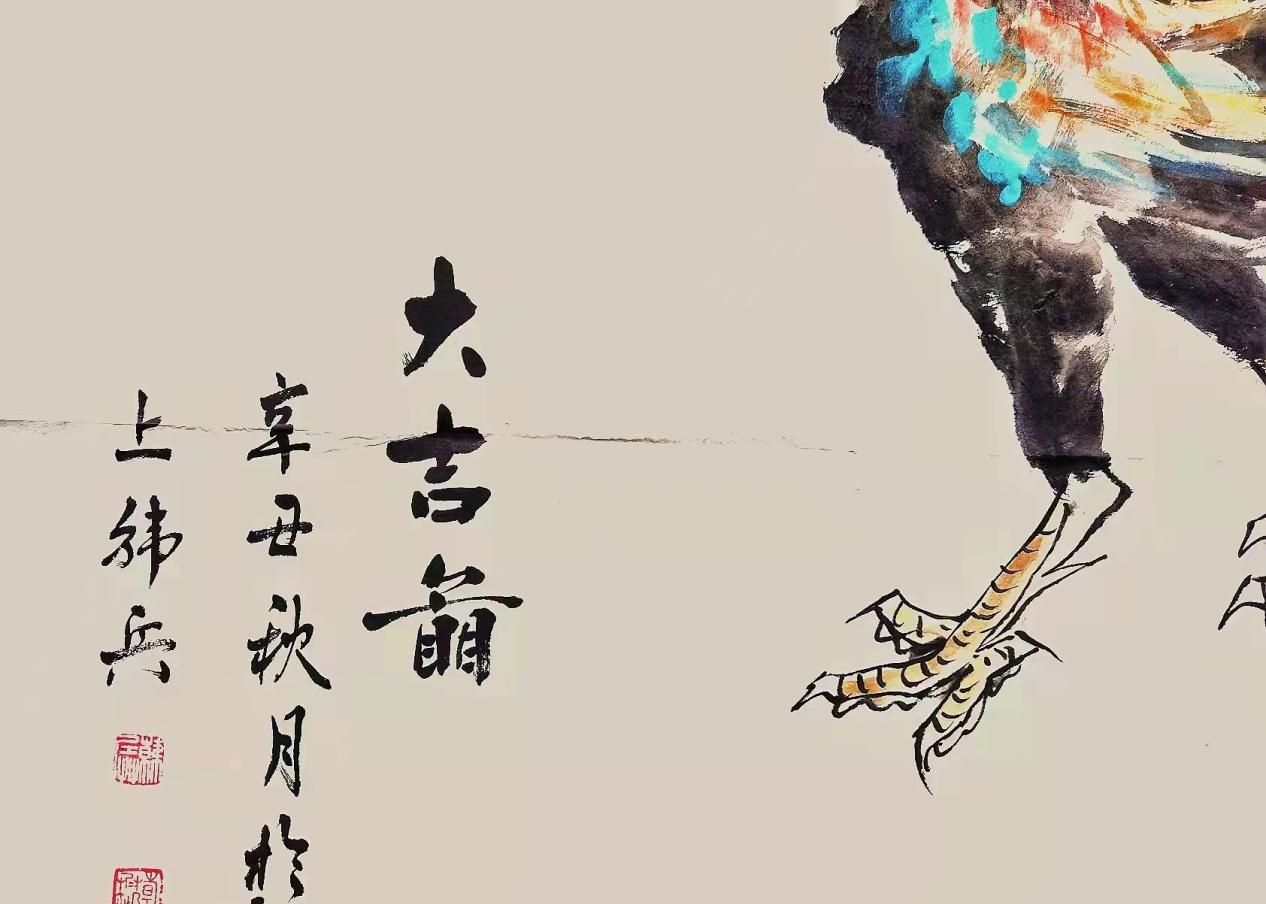 大吉
辛丑秋月於
上韩兵